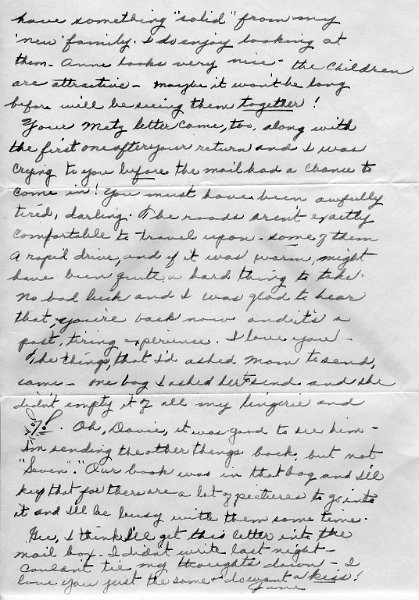 have something "solid" from my
'new' family. I do enjoy looking at
them. Anne looks very nice - the children
are attractive - maybe it won't be long
before will be seeing them together!
Your Metz letter came, too, along with
the first one after your return and I was
crying to you before the mail had a chance to
come in! You must have been awfully
tired, darling. The roads aren't exactly
comfortable to travel upon - some of them
a rapid drive, and if it was warm, might
have been quite a hard thing to take.
No bad luck and I was glad to hear
that, you're back now and it's a
past, tiring experience. I love you!
The things, that I'd asked Mom to send,
came - one bag I asked her to send and she
didn't empty it of all my lingerie and
Oh, Davie, it was good to see him -
I'm sending the other things back, but not
"Seven." Our book was in that bag and I'll
keep that for there are a lot of pictures to go into
it and I'll be busy with them some time.
Gee, I think I'll get this letter into the
mail box. I didn't write last night -
couldn't tie my thoughts down - I
love you just the same + do want a kiss!
June